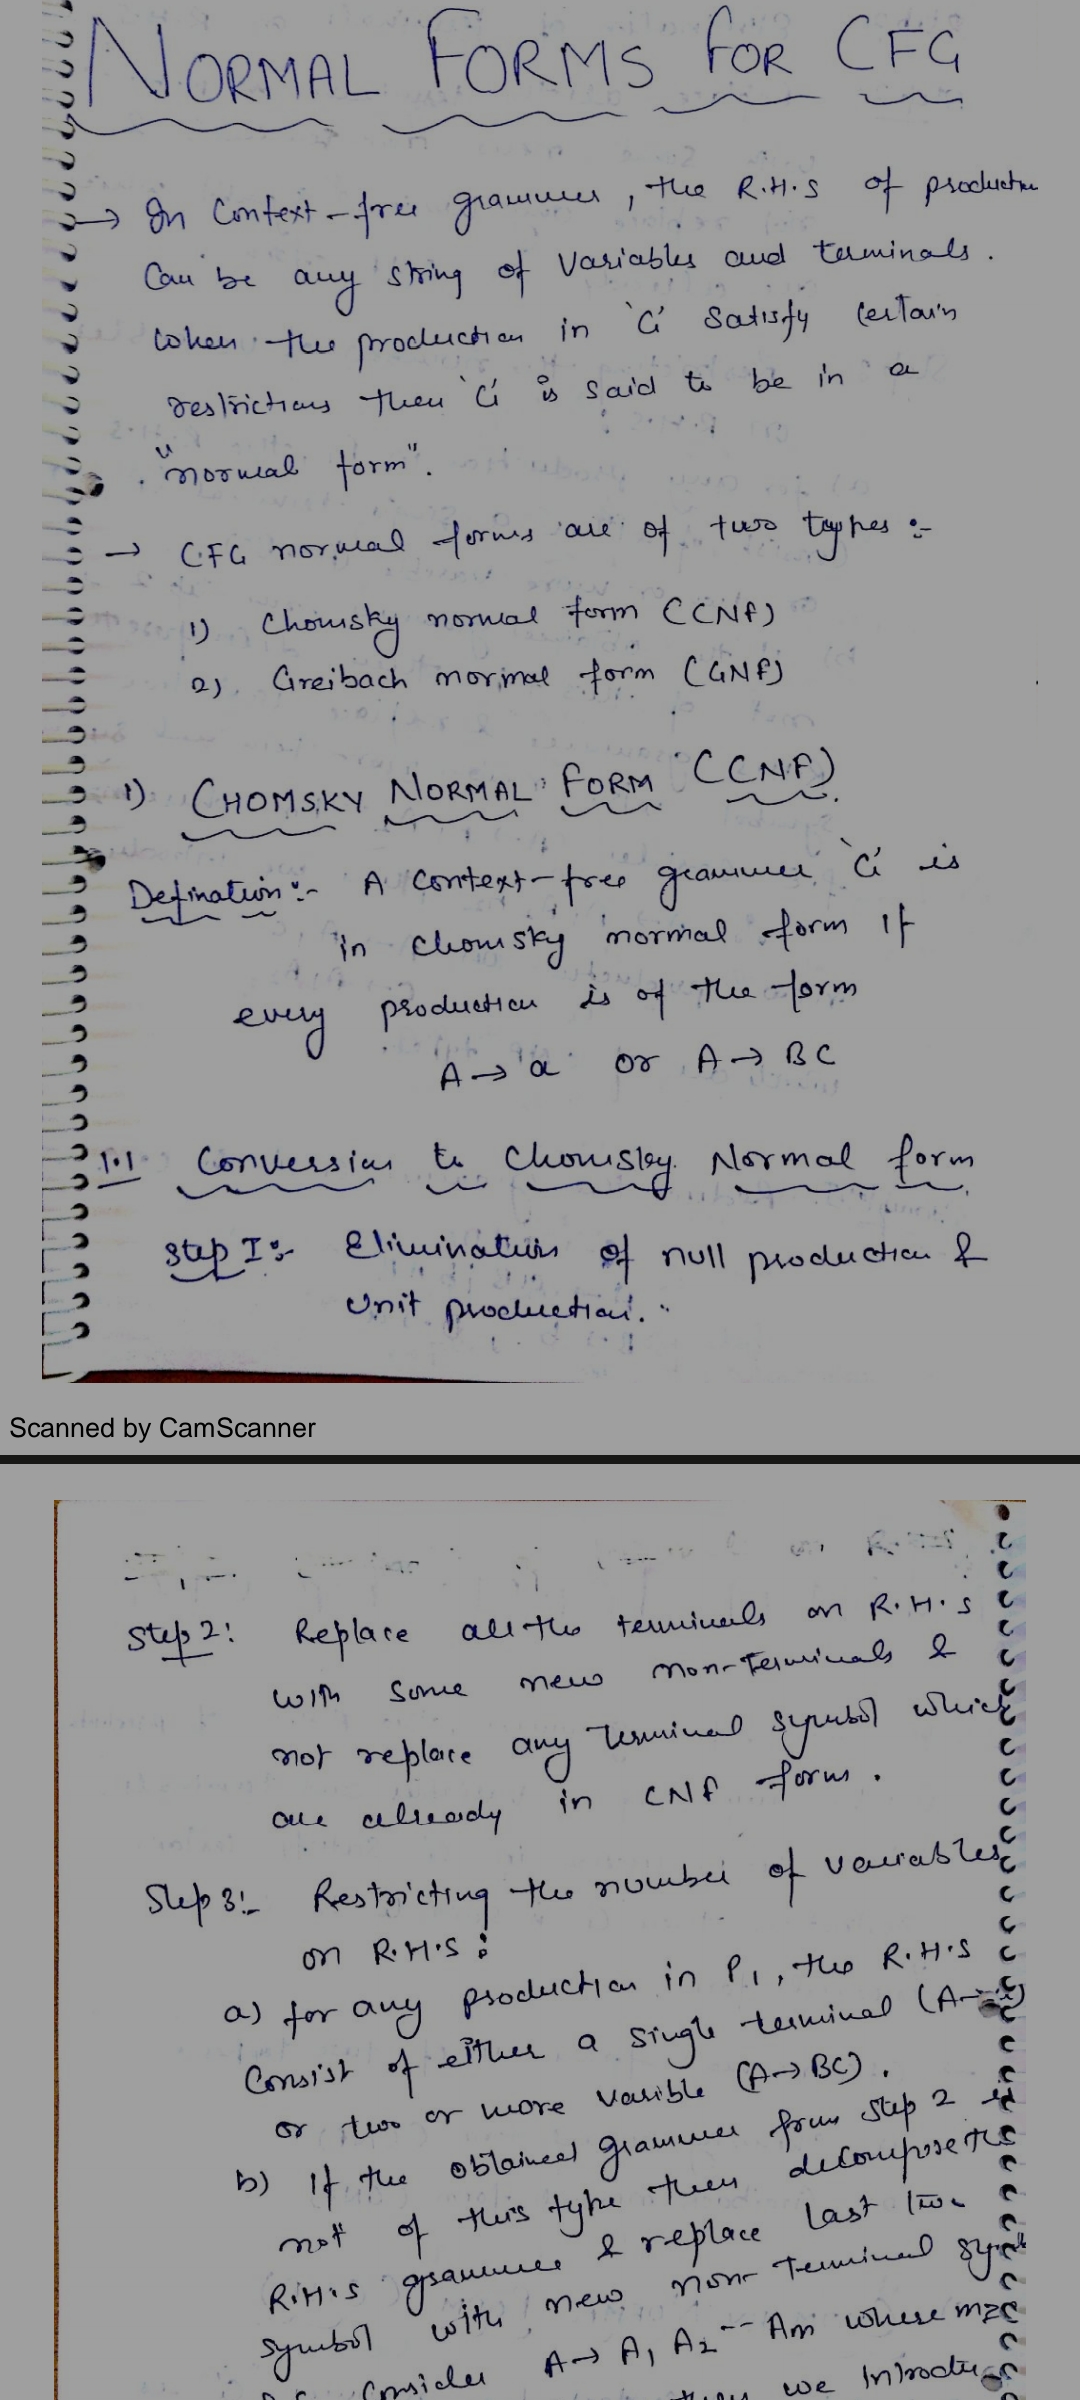 NORMAL FORMS FOR CFG
→ In Context-free grammer, the R.H.S of production
Can be any string of Variables and terminals.
When the production in 'G' Satisfy Certain
restrictions then 'G' is said to be in a
"normal form".
→ CFG normal forms are of two types :-
1) Chomsky normal form (CNF)
2) Greibach normal form (GNF)
1) CHOMSKY NORMAL FORM (CNF)
Defination:- A Context-free grammer 'G' is
in chomsky normal form if
every production is of the form
A → a or A → BC
1.1 Conversion to Chomsky Normal form
Step I:- Elimination of null production &
Unit production.
Scanned by CamScanner
Step 2: Replace all the terminals on R.H.S
with some new non-terminals &
not replace any terminal symbol which
are already in CNF form.
Step 3:- Restricting the number of variables
on R.H.S :
a) for any production in P1, the R.H.S
Consist of either a single terminal (A→
or two or more varible (A→BC).
b) If the obtained grammer from Step 2 is
not of this type then decompose the
R.H.S grammer & replace last two
symbol with new non-terminal
Consider A → A1 A2 -- Am where
we Introdu